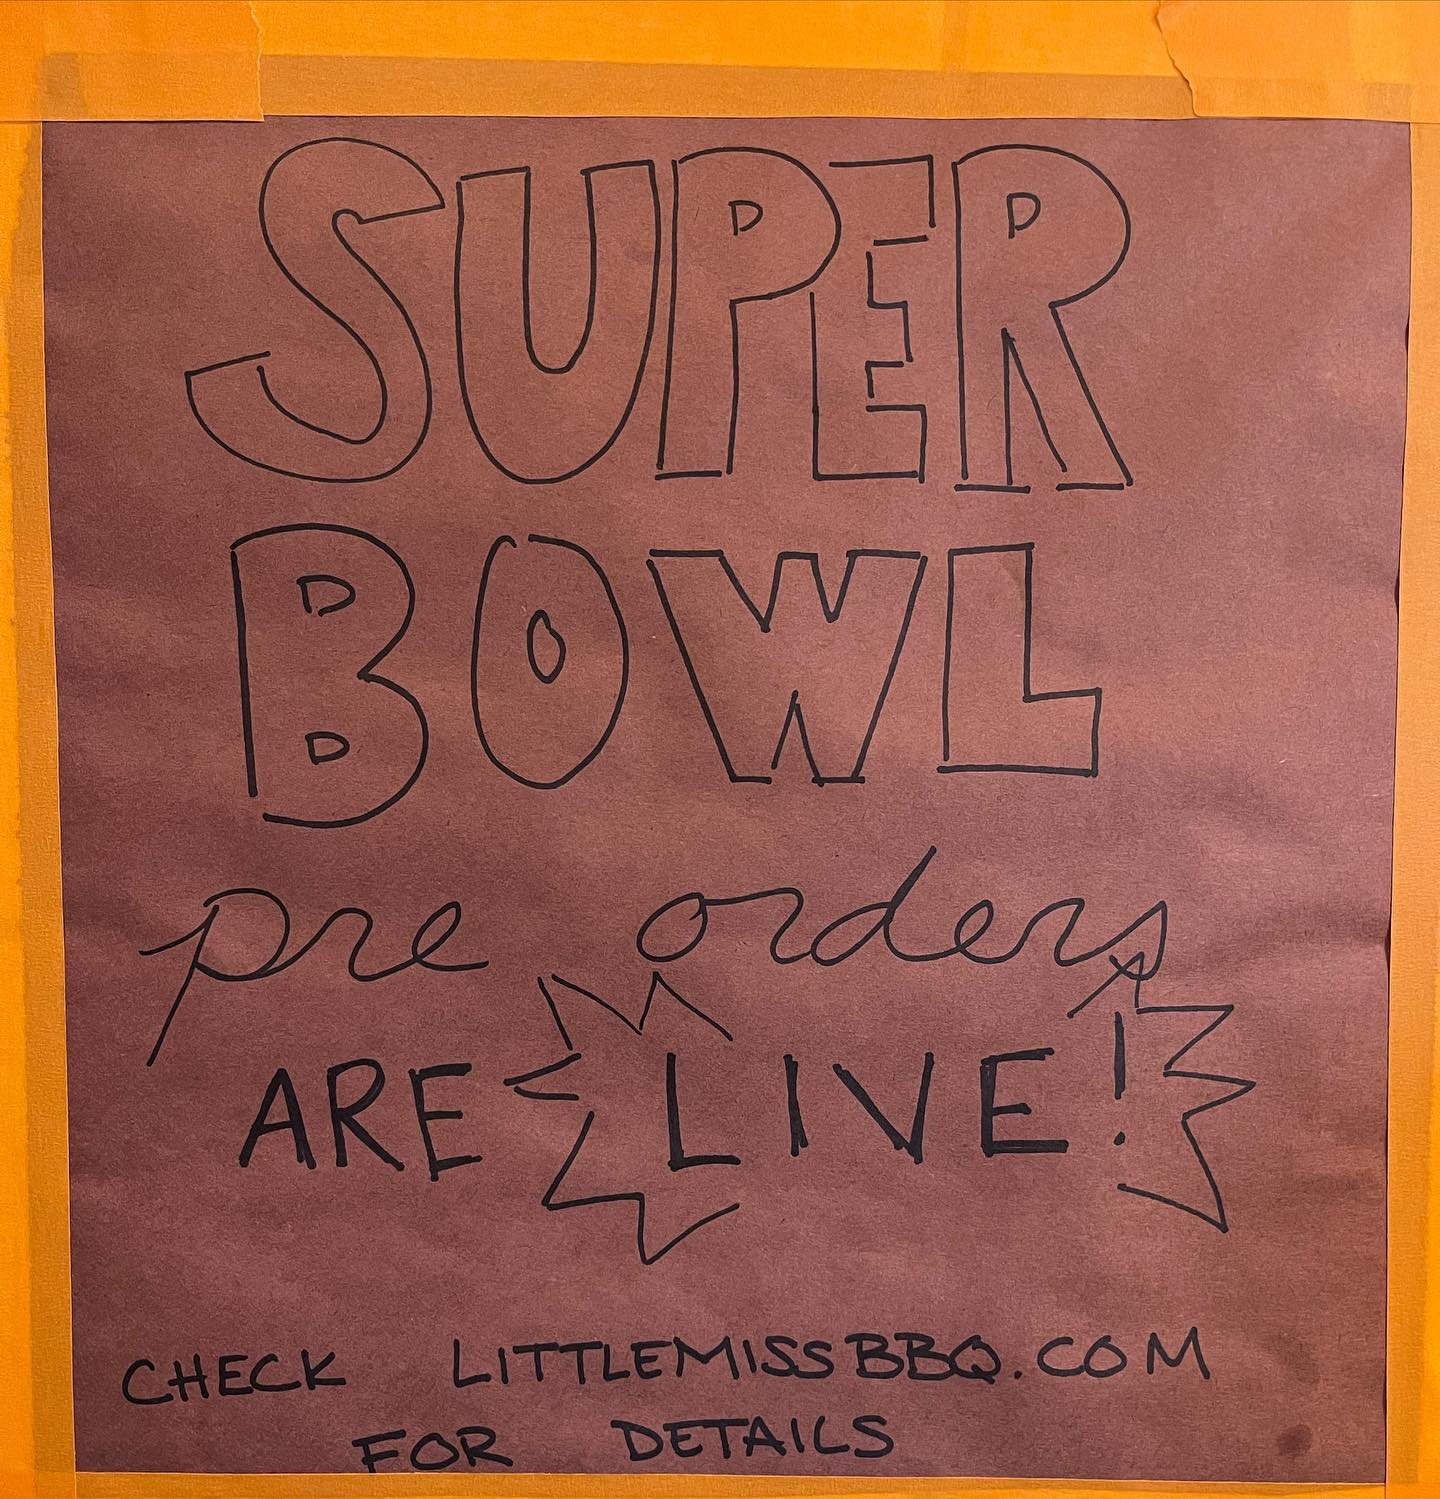 SUPER
BOWL
pre orders
ARE LIVE!
CHECK LITTLEMISSBBQ.COM
FOR DETAILS